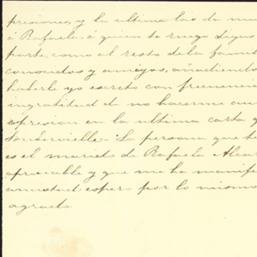 presiones, y la ultima las de mi
á Rafaela á quien te ruego digas
parte, como al resto de la fami
conocidos y amigos, añadiendo
haberle yo escrito con frecuencia
ingratitud de no hacerme cu
espresion en la ultima carta q
La persona que te
es el marido de Rafaela Alvar
apreciable y que me ha manif
amistad espero por lo mismo
agrado